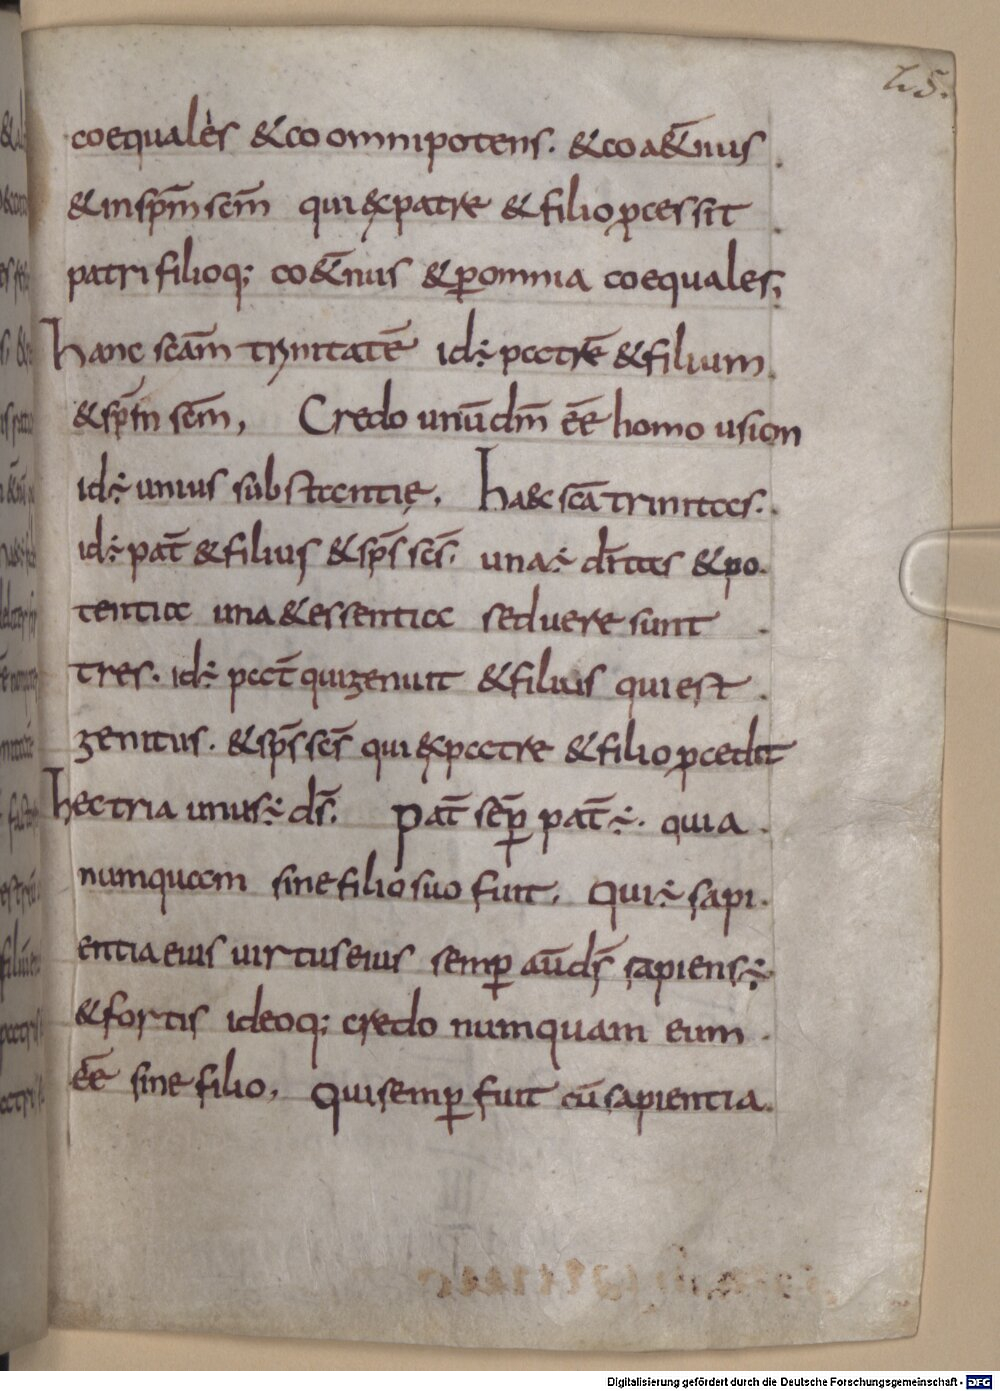 25.
coequales &co omnipotens. &coa&̄nus
&in sp̄m sc̄m qui &patre & filio ꝓcessit
patri filioq; co&̄nus & ꝑomnia coequales;
hanc scām trinitatē id÷ patrē & filium
& sp̄m sc̄m, Credo unū dm̄ eē homo usion
id÷ unius substantię, ha&c scā trinitas.
id÷ pat̄ & filius & sp̄s sc̄s. una÷ dītas & po
tentia una & essentia sed uere sunt
tres. id÷ pat̄ qui genuit & filius qui est
genitus. & sp̄s sc̄s qui &patre & filio ꝓcedit
hec tria unus÷ ds̄. Pat̄ sēp̱ pat̄÷. quia
numquam sine filio suo fuit, Qui÷ sapi
entia eius uirtus eius semꝑ aū ds̄ sapiens÷
& fortis ideoq; credo numquam eum
eē sine filio, Qui semꝑ fuit cū sapientia.
Digitalisierung gefördert durch die Deutsche Forschungsgemeinschaft - DFG